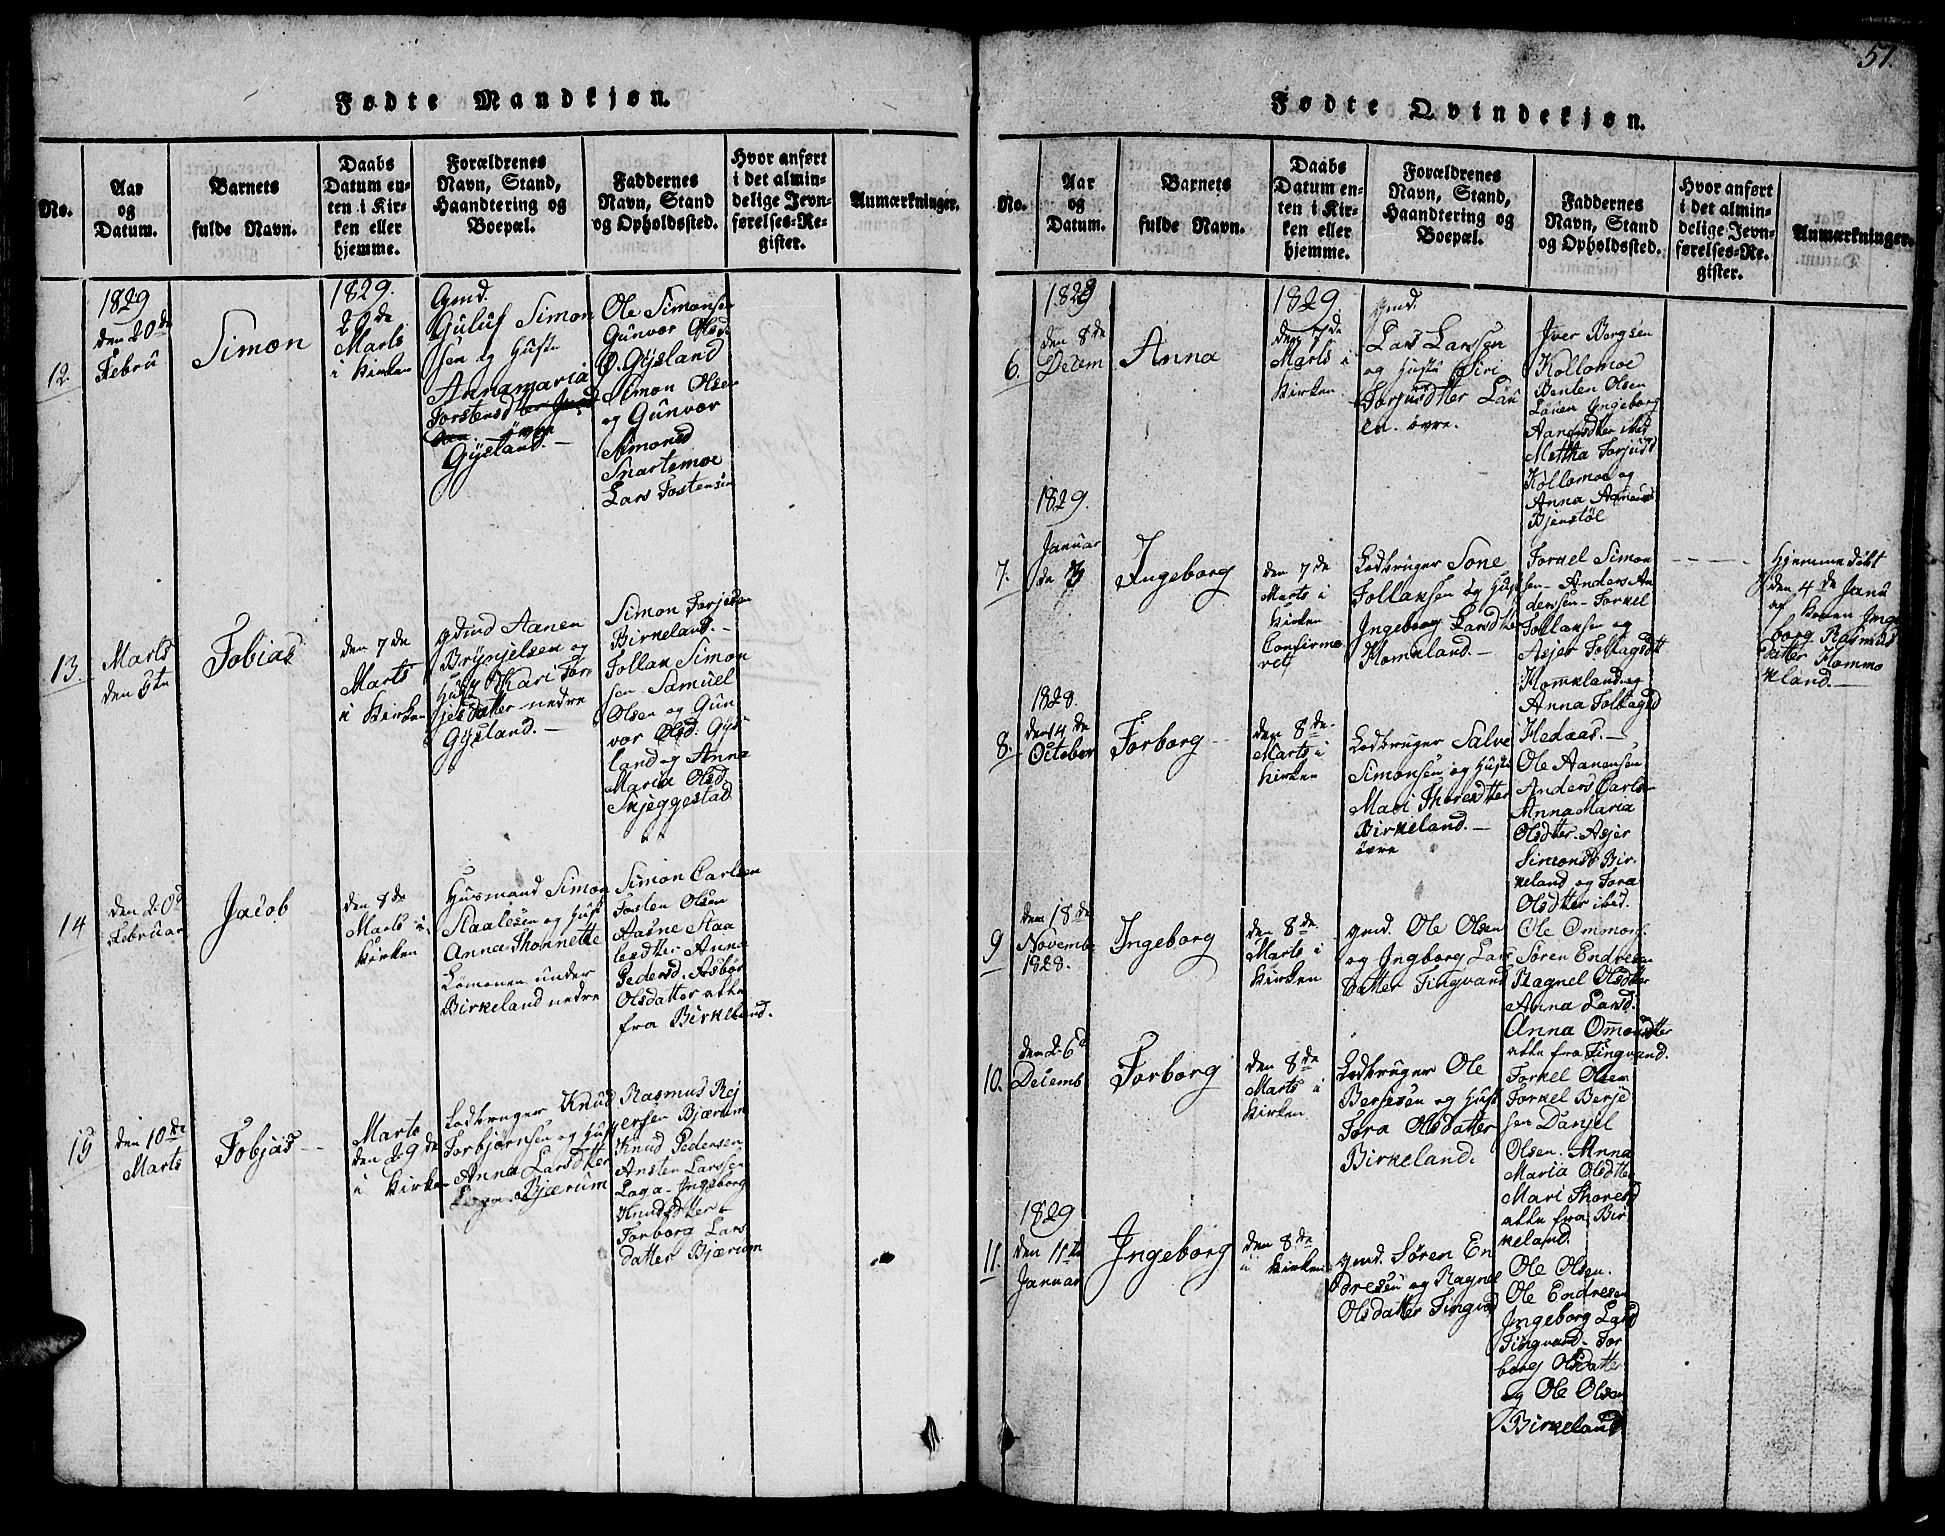 Fødte Mandkjøn.
No.
Aar
og
Datum.
Barnets
fulde Navn.
Daabs
Datum en-
ten i Kir-
ken eller
hjemme.
Forældrenes
Navn, Stand,
Haandtering og
Boepæl.
Faddernes
Navn, Stand
og Opholdssted.
Hvor anført
i det almin-
delige Jevn-
førelses-Re-
gister.
Anmærkninger.
12.
1829
den 20de
Febru
Simon
1829.
29de
Marts
i Kirken
Gmd.
Guluf Simon
sen og Hustr
Annamaria
Torstensd
Gysland.
Ole Simonsen
Gunvor Olsd.
Ø. Gysland
Simon Olsen
og Gunvor
Simonsd
Snartemoe
Lars Tostensen
13.
Marts
den 5te
Tobias
den 7de
Marts
i Kirken
gdmd Aanen
Brynjelsen og
Hust Kari Tor
jesdatter nedre
Gysland. —
Simon Torjesen
Birkeland. —
Tollak Simon
sen - Samuel
Olsen og Gun
vor Olsd: Gys
land og Anna
Maria Olsd.
Skjeggestad
14
den 20d
Februar
Jacob
den 8de
Marts i
Kirken
Husmand Simon
Staalesen og Hust
Anna Thonnette
Lømonen under
Birkeland nedre
Simon Carlsen
Torsten Olsen
Aasne Staa
lesdtter Anna
Pedersd. Asbør
Olsdatter alle
fra Birkeland.
15
den 10de
Marts
Tobjas
Marts
den 29de
i Kirken
Ledbruger Knud
Torbjørnsen og Hust
Anna Larsdtter
Bjærum
Rasmus Rej
ersen Bjærum
Knud Pedersen
Ansten Larssen
Laga - Ingeborg
Knudsdtter
Torborg Lars
datter Bjærum
57.
Fødte Qvindekjøn.
No.
Aar
og
Datum.
Barnets
fulde Navn.
Daabs
Datum en-
ten i Kir-
ken eller
hjemme.
Forældrenes
Navn, Stand,
Haandtering og
Boepæl.
Faddernes
Navn, Stand
og Opholdssted.
Hvor anført
i det almin-
delige Jevn-
førelses-Re-
gister.
Anmærkninger.
6.
1828
den 8de
Decem
Anna
1829
den 7de
Marts i
Kirken
gmd.
Lars Larssen
og Hustr Siri
Torjusdtter Lau
en. øvre.
Jver Bergsen
Kollomoe
Benten Olsen
Lauen Ingeborg
Aanensdtter ibid
Mettha Torjusd
Kollomoe og
Anna
Bjenstøl
7.
1829.
Januar
de 3
Ingeborg
den 7de
Marts i
Kirken
Confirme
ret
Ledbruger Sone
Tollaksen og Hust
Ingeborg Larsdtter
Homkland. —
Torkel Simon
sen - Anders An
derssen - Torkel
Tollaksen og
Asjer Tollagsdtt
Homkland og
Anna Tollagsd
Hedaas. —
Hjemmedøbt
den 4de Janu
af Konen Inge
borg Rasmus
datter Hommo
kland. —
8.
1828.
den 14de
October
Torborg
den 8de
Marts i
Kirken
Ledbruger Salve
Simonsen og Hustr
Mari Thoresdtter
Birkeland. —
øvre
Ole Aanensen
Anders Carlsen
Anna Maria
Olsdtter - Asjer
Simonsd Bir
keland og Tora
Olsdtter ibid.
9
den 18de
Novembr
1828.
Ingeborg
den 8de
Marts i
Kirken
gmd. Ole Olsen
og Ingborg Lars
datter Tingvand
Ole Ommons.
Søren Endresen
Ragnel Olsdtter
Anna Larsd.
Anna Omondtter
alle fra Tingvand.
10.
den 26d
Decemb
Torborg
den 8de
Marts i
Kirken
Ledbruger Ole
Berjesen og Hust
Tora Olsdatter
Birkeland.
Torkel Olsen
Torkel Berje
sen Danjel
Olsen. Anna
Maria Olsdtter
Mari Thoresd
alle fra Bir
keland.
11.
1829
den 11te
Januar
Ingeborg
den 8de
i Kirken
gmd. Søren En
dresen og Ragnel
Olsdatter Tingvd
Ole Olsen.
Ole Endresen
Ingeborg Larsd
Tingvand - Tor
borg Olsdatter
og Ole Olsen
Birkeland